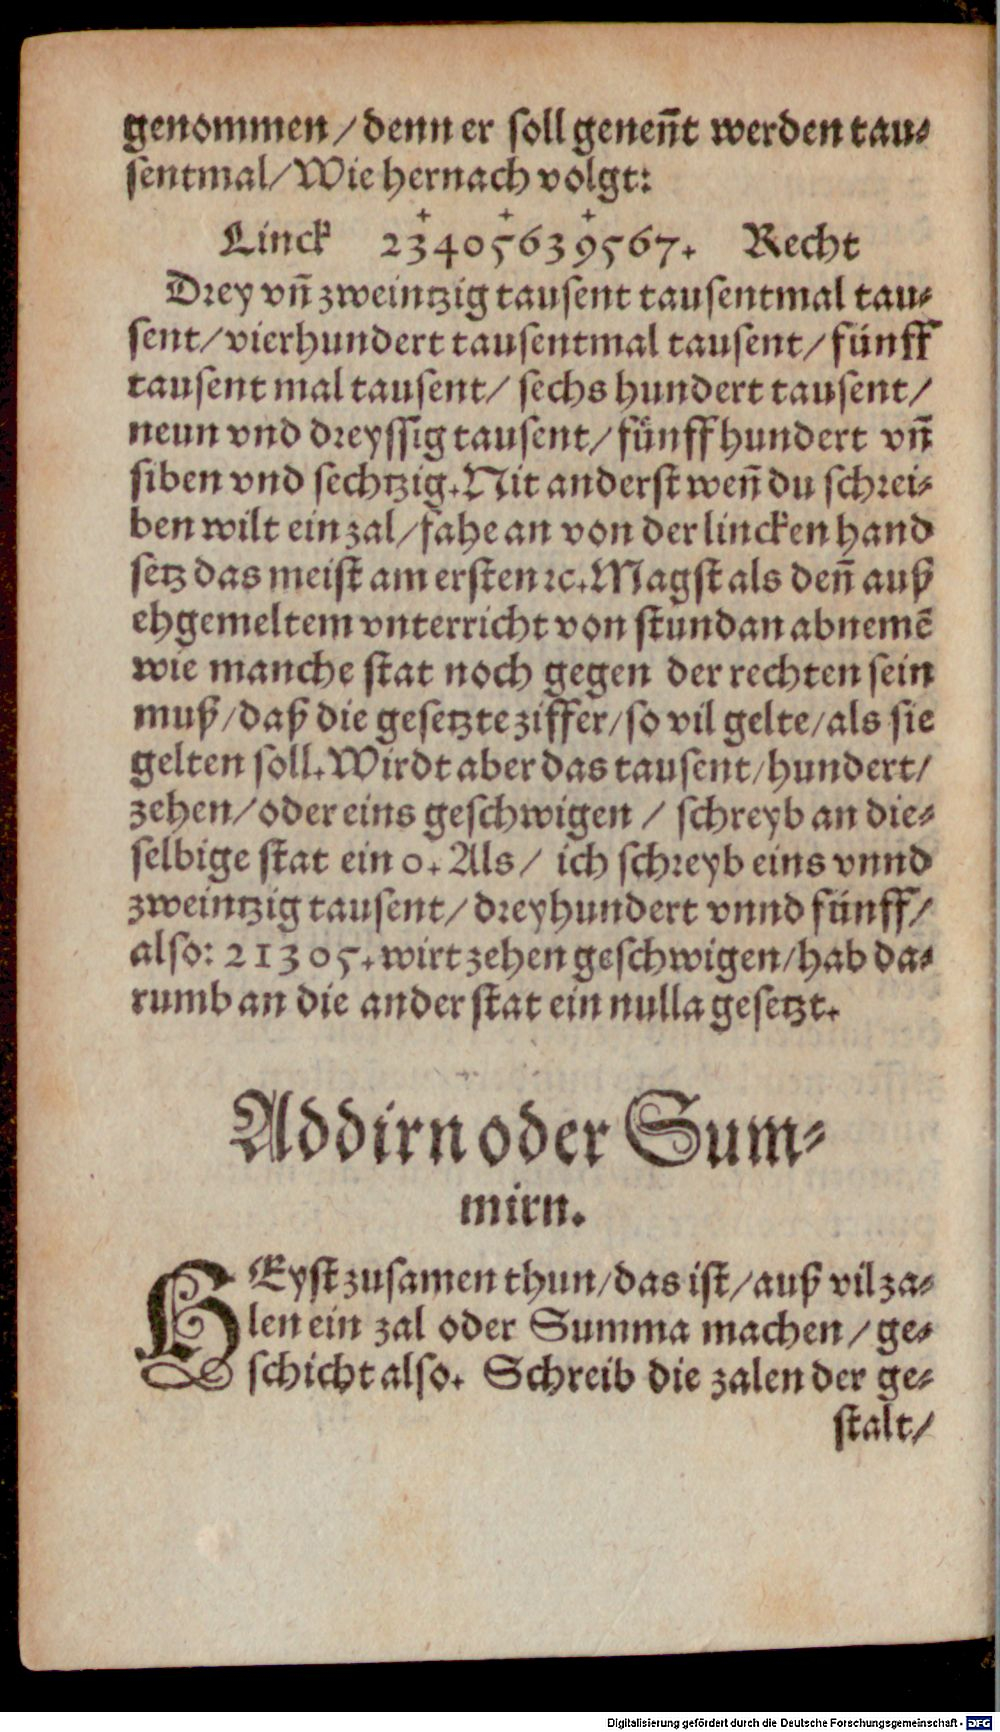 genommen / denn er soll geneñt werden tau⸗
sentmal / Wie hernach volgt:
+ + +
Linck 23405639567. Recht
Drey vñ zweintzig tausent tausentmal tau⸗
sent / vierhundert tausentmal tausent / fünff
tausent mal tausent / sechs hundert tausent /
neun vnd dreyssig tausent / fünff hundert vñ
siben vnd sechtzig. Nit anderst weñ du schrei⸗
ben wilt ein zal / fahe an von der lincken hand
setz das meist am ersten ꝛc. Magst als deñ auß
ehgemeltem vnterricht von stund an abnemẽ
wie manche stat noch gegen der rechten sein
muß / daß die gesetzte ziffer / so vil gelte / als sie
gelten soll. Wirdt aber das tausent / hundert /
zehen / oder eins geschwigen / schreyb an die⸗
selbige stat ein 0. Als / ich schreyb eins vnnd
zweintzig tausent / dreyhundert vnnd fünff /
also: 21305. wirt zehen geschwigen / hab da⸗
rumb an die ander stat ein nulla gesetzt.
Addirn oder Sum⸗
mirn.
HEyst zusamen thun / das ist / auß vil za⸗
len ein zal oder Summa machen / ge⸗
schicht also. Schreib die zalen der ge⸗
stalt /
Digitalisierung gefördert durch die Deutsche Forschungsgemeinschaft - DFG